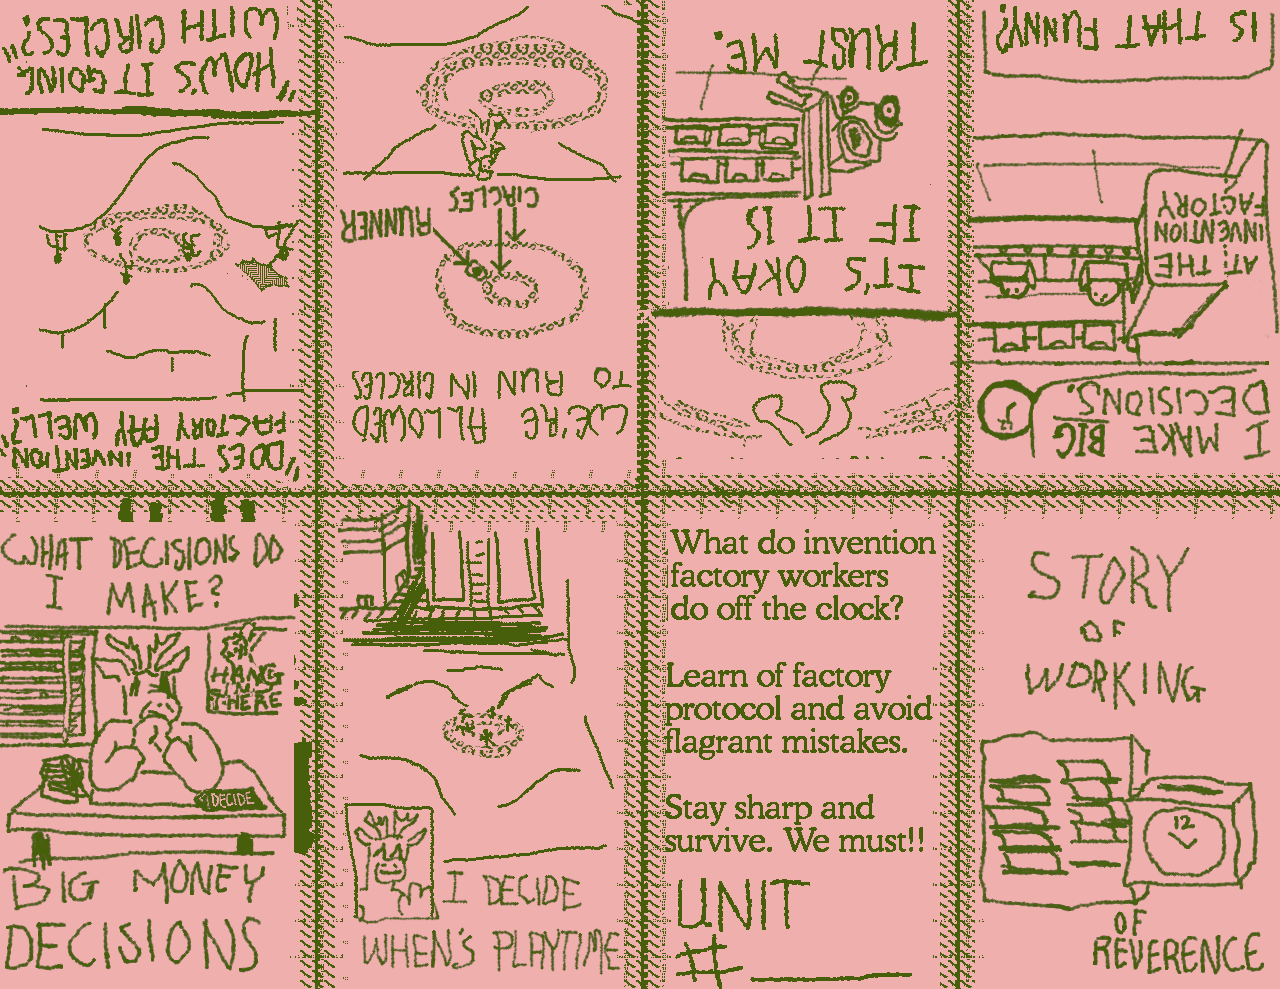 STORY
OF
WORKING
12
OF
REVERENCE
I MAKE BIG
DECISIONS.
AT THE
INVENTION
FACTORY
IS THAT FUNNY?
IT'S OKAY
IF IT IS
TRUST ME.
WE'RE ALLOWED
TO RUN IN CIRCLES
RUNNER
CIRCLES
"DOES THE INVENTION
FACTORY PAY WELL?"
"HOW'S IT GOING
WITH CIRCLES?"
WHAT DECISIONS DO
I MAKE?
HANG
IN
THERE
DECIDE
BIG MONEY
DECISIONS
I DECIDE
WHEN'S PLAYTIME
What do invention
factory workers
do off the clock?
Learn of factory
protocol and avoid
flagrant mistakes.
Stay sharp and
survive. We must!!
UNIT
# ________